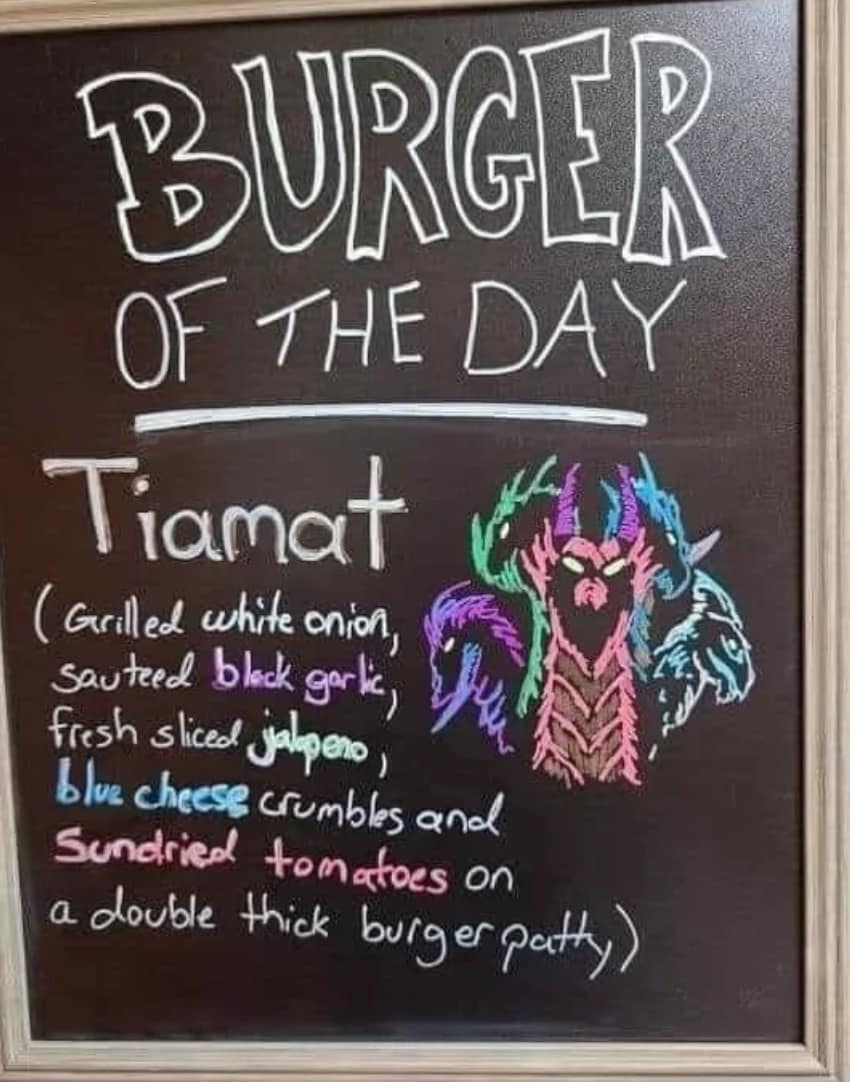 BURGER
OF THE DAY
Tiamat
(Grilled white onion,
sauteed black garlic,
fresh sliced jalapeno,
blue cheese crumbles and
Sundried tomatoes on
a double thick burger patty)